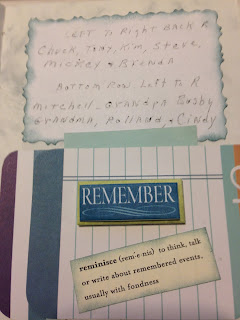 Left to Right Back R
Chuck, Tony, Kim, Steve,
Mickey & Brenda
Bottom Row Left to R
Mitchell - Grandpa
Grandma, & Cindy
REMEMBER
reminisce (rem·i·nis) to think, talk
or write about remembered events,
usually with fondness